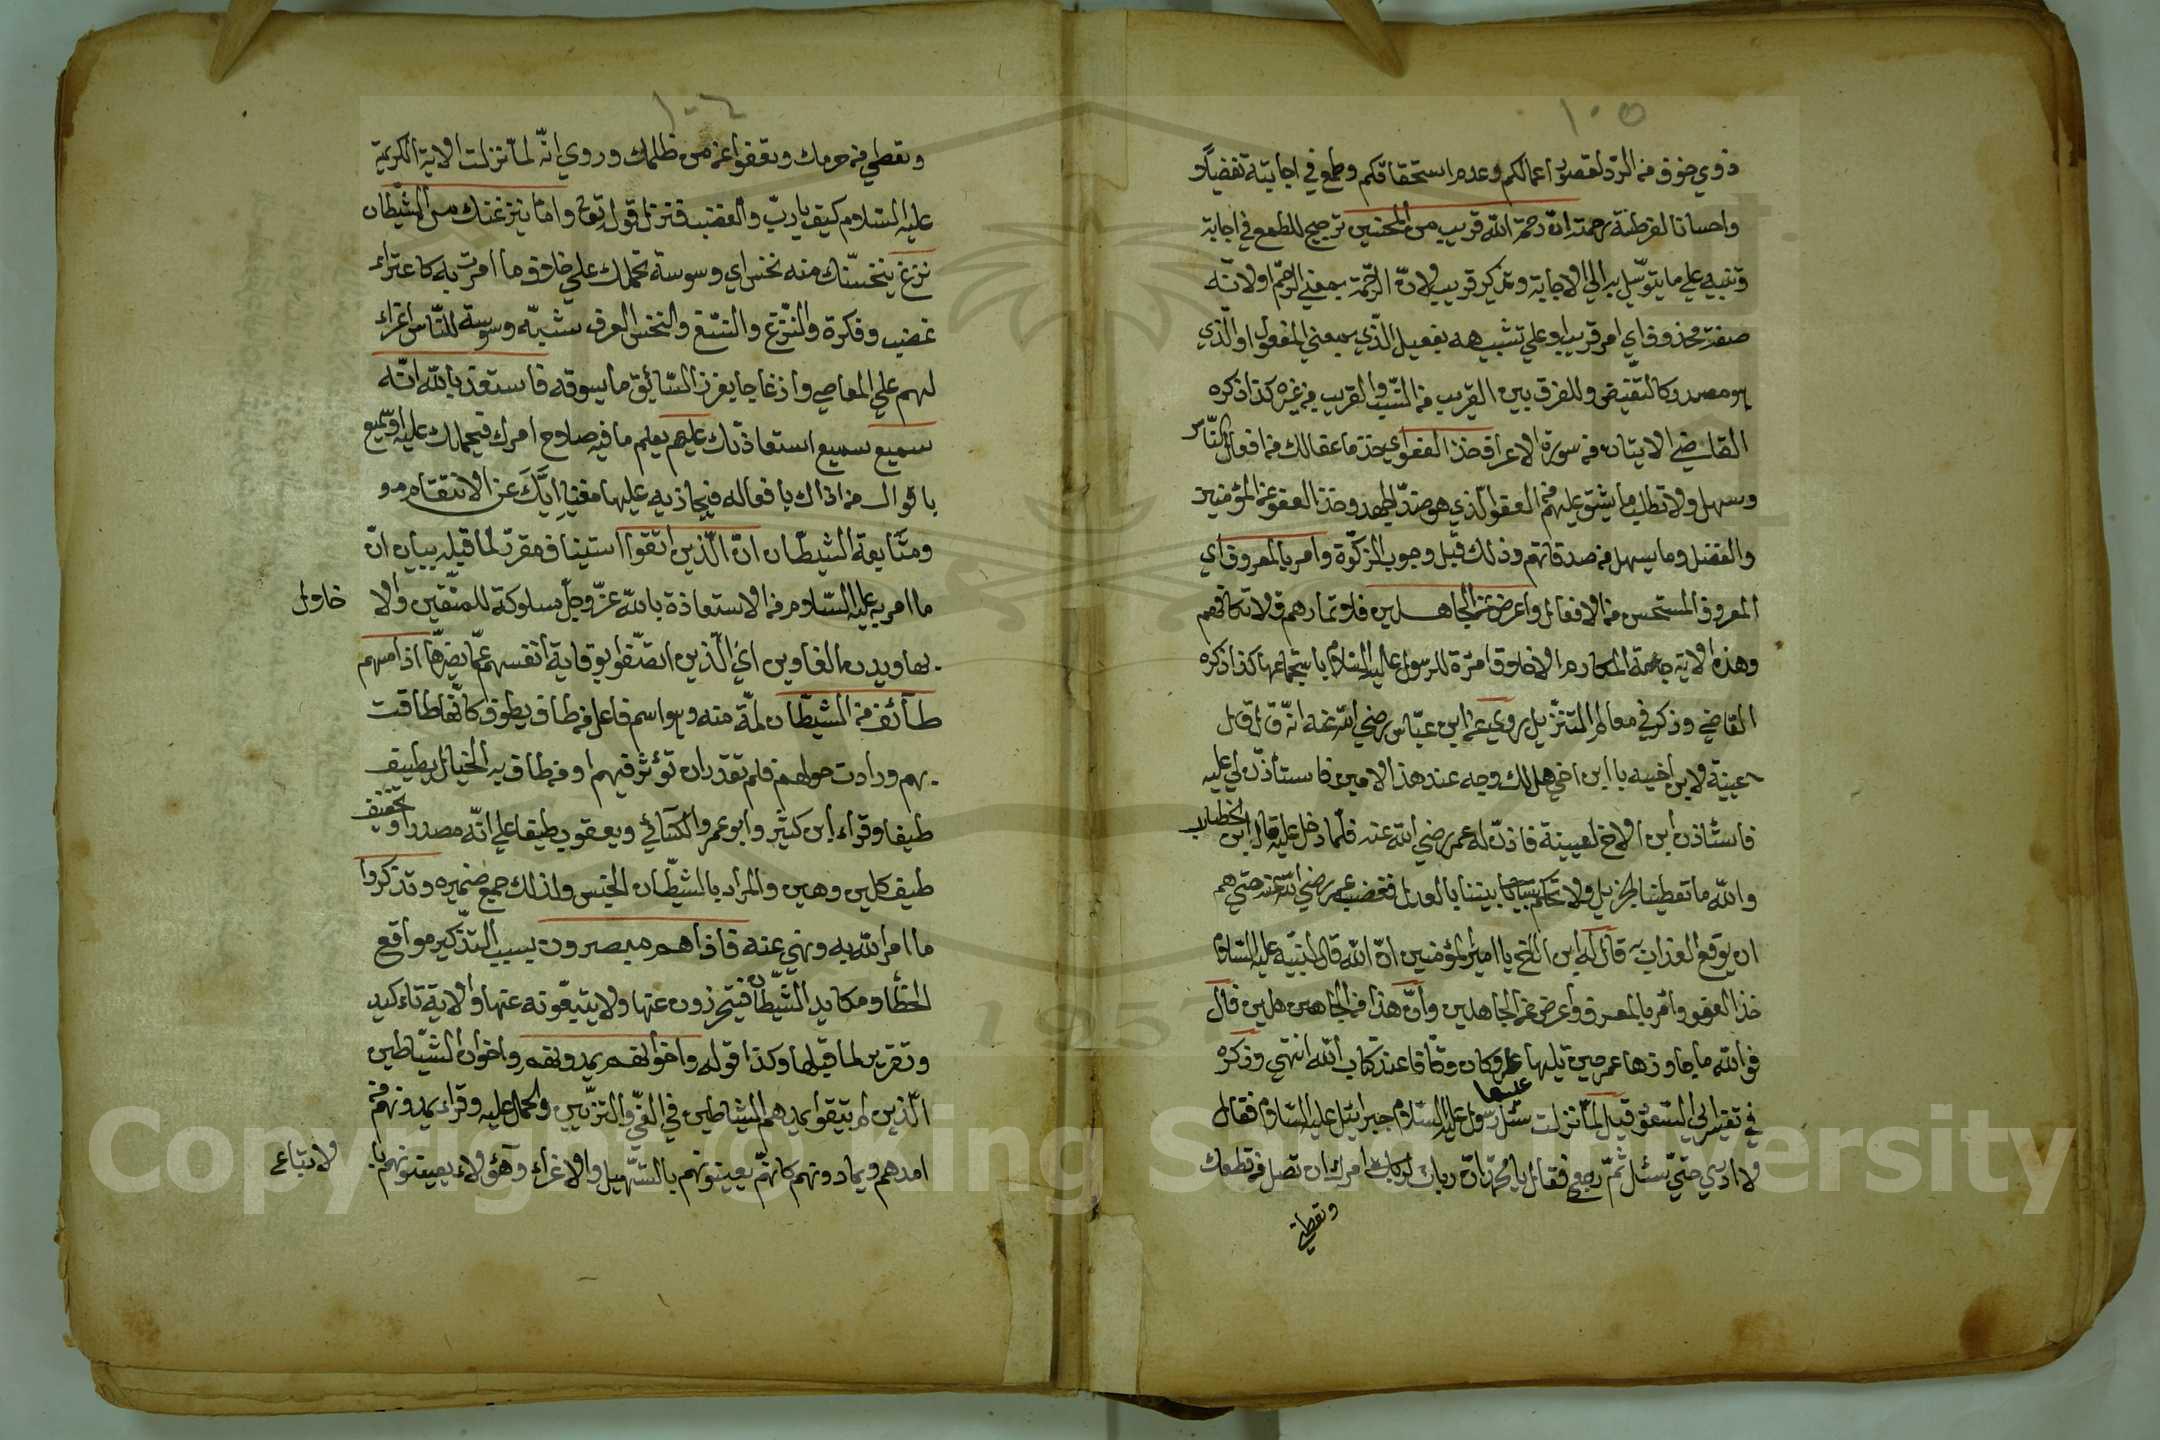 ١٠٥
ذوي خوف من الرد لقصور اعمالكم وعدم استحقاقكم وطمع في اجابته تفضلا
واحسانا لفرط رحمته ان رحمة الله قريب من المحسنين ترجيح للطمع في اجابة
وتنبيه علي ما يتوسل به الي الاجابة وتذكير قريب لان الرحمة بمعني الرحم او لانه
صفة محذوف اي امر قريب او علي تشبيهه بفعيل الذي بمعني المفعول او الذي
هو مصدر كالنقيض وللفرق بين القريب من النسب والقريب من غيره كذا ذكره
القاضي الايتان من سورة الاعراف خذ العفو اي خذ ما عفا لك من افعال الناس
وسهل ولا تطلب ما يشق عليهم من العفو الذي هو ضد الجهد وخذ العفو عن المؤمنين
والفضل وما يسهل من صدقاتهم وذلك قبل وجوب الزكوة وامر بالمعروف اي
المعروف المستحسن من الافعال واعرض عن الجاهلين فلا تمارهم ولا تكافهم
وهذه الاية جامعة لمكارم الاخلاق امرة للرسول عليه السلام باستجماعها كذا ذكره
القاضي وذكر في معالم التنزيل روي عن ابن عباس رضي الله عنه انه قال قال
عيينة لابن اخيه يا ابن اخي هل لك وجه عند هذا الامير فاستأذن لي عليه
فاستأذن ابن الاخ لعيينة فاذن له عمر رضي الله عنه فلما دخل عليه قال ابن الخطاب
والله ما تعطينا الجزيل ولا تحكم بيننا بالعدل فغضب عمر رضي الله عنه حتي هم
ان يوقع العذاب به قال له ابن الاخ يا امير المؤمنين ان الله قال لنبيه عليه السلام
خذ العفو وأمر بالمعروف واعرض عن الجاهلين وان هذا من الجاهلين قال
فوالله ما جاوزها عمر حين تليها عليه وكان وقافا عند كتاب الله انتهي وذكر
في تفسير ابي السعود قيل لما نزلت سئل رسول عليه السلام جبرائيل عليه السلام فقال
لا ادري حتي سئل ثم رجع فقال يا محمد ان ربك امرك ان تصل من قطعك
وتعطي
١٠٦
وتعطي من حرمك وتعفوا عن من ظلمك وروي انه لما نزلت الاية الكريمة
عليه السلام كيف يا رب والغضب فنزل قوله تع واما ينزغنك من الشيطان
نزغ ينخسنك منه نخس اي وسوسة تحملك علي خلاف ما امرت به كاعتراء
غضب وفكرة والنزغ والنسغ والنخس الغرز شبه وسوسة للناس اغراء
لهم علي المعاصي وازعاجا بغرز السائق ما يسوقه فاستعذ بالله انه
سميع سميع استعاذتك عليم يعلم ما فيه صلاح امرك فيحملك عليه او سميع
باقوال من اذاك بافعاله فيجازيه عليها مغنيا اياك عن الانتقام
ومتابعة الشيطان ان الذين اتقوا استيناف مقرر لما قبله ببيان ان
ما امر به عليه السلام من الاستعاذة بالله عز وجل مسلوكة للمتقين والا
خلال
بها ويدن الغاوين اي الذين اتصفوا بوقاية انفسهم عما يضرها اذا مسهم
طائف من الشيطان لمة منه وهو اسم فاعل من طاف يطوف كأنها طافت
بهم ودارت حولهم فلم تقدر ان تؤثر فيهم او من طاف به الخيال يطيف
طيفا وقراء ابن كثير وابو عمرو الكسائي ويعقوب طيفا علي انه مصدر او تخفيف
طيف كلين وهين والمراد بالشيطان الجنس ولذلك جمع ضميره وتذكروا
ما امر الله به ونهي عنه فاذا هم مبصرون بسبب التذكير مواقع
الخطأ ومكايد الشيطان فيتحرزون عنها ولا يتبعونه عنها والاية تاءكيد
وتقرير لما قبلها وكذا قوله واخوانهم يمدونهم واخوان الشياطين
الذين لم يتقوا يمدهم الشياطين في الغي والتزيين والحمل عليه وقراء يمدونهم من
امدهم ويمادونهم كانهم يعينونهم بالتسهيل والاغراء وهؤلاء يعينونهم با
لاتباع
Copyright © King Saud University
1957